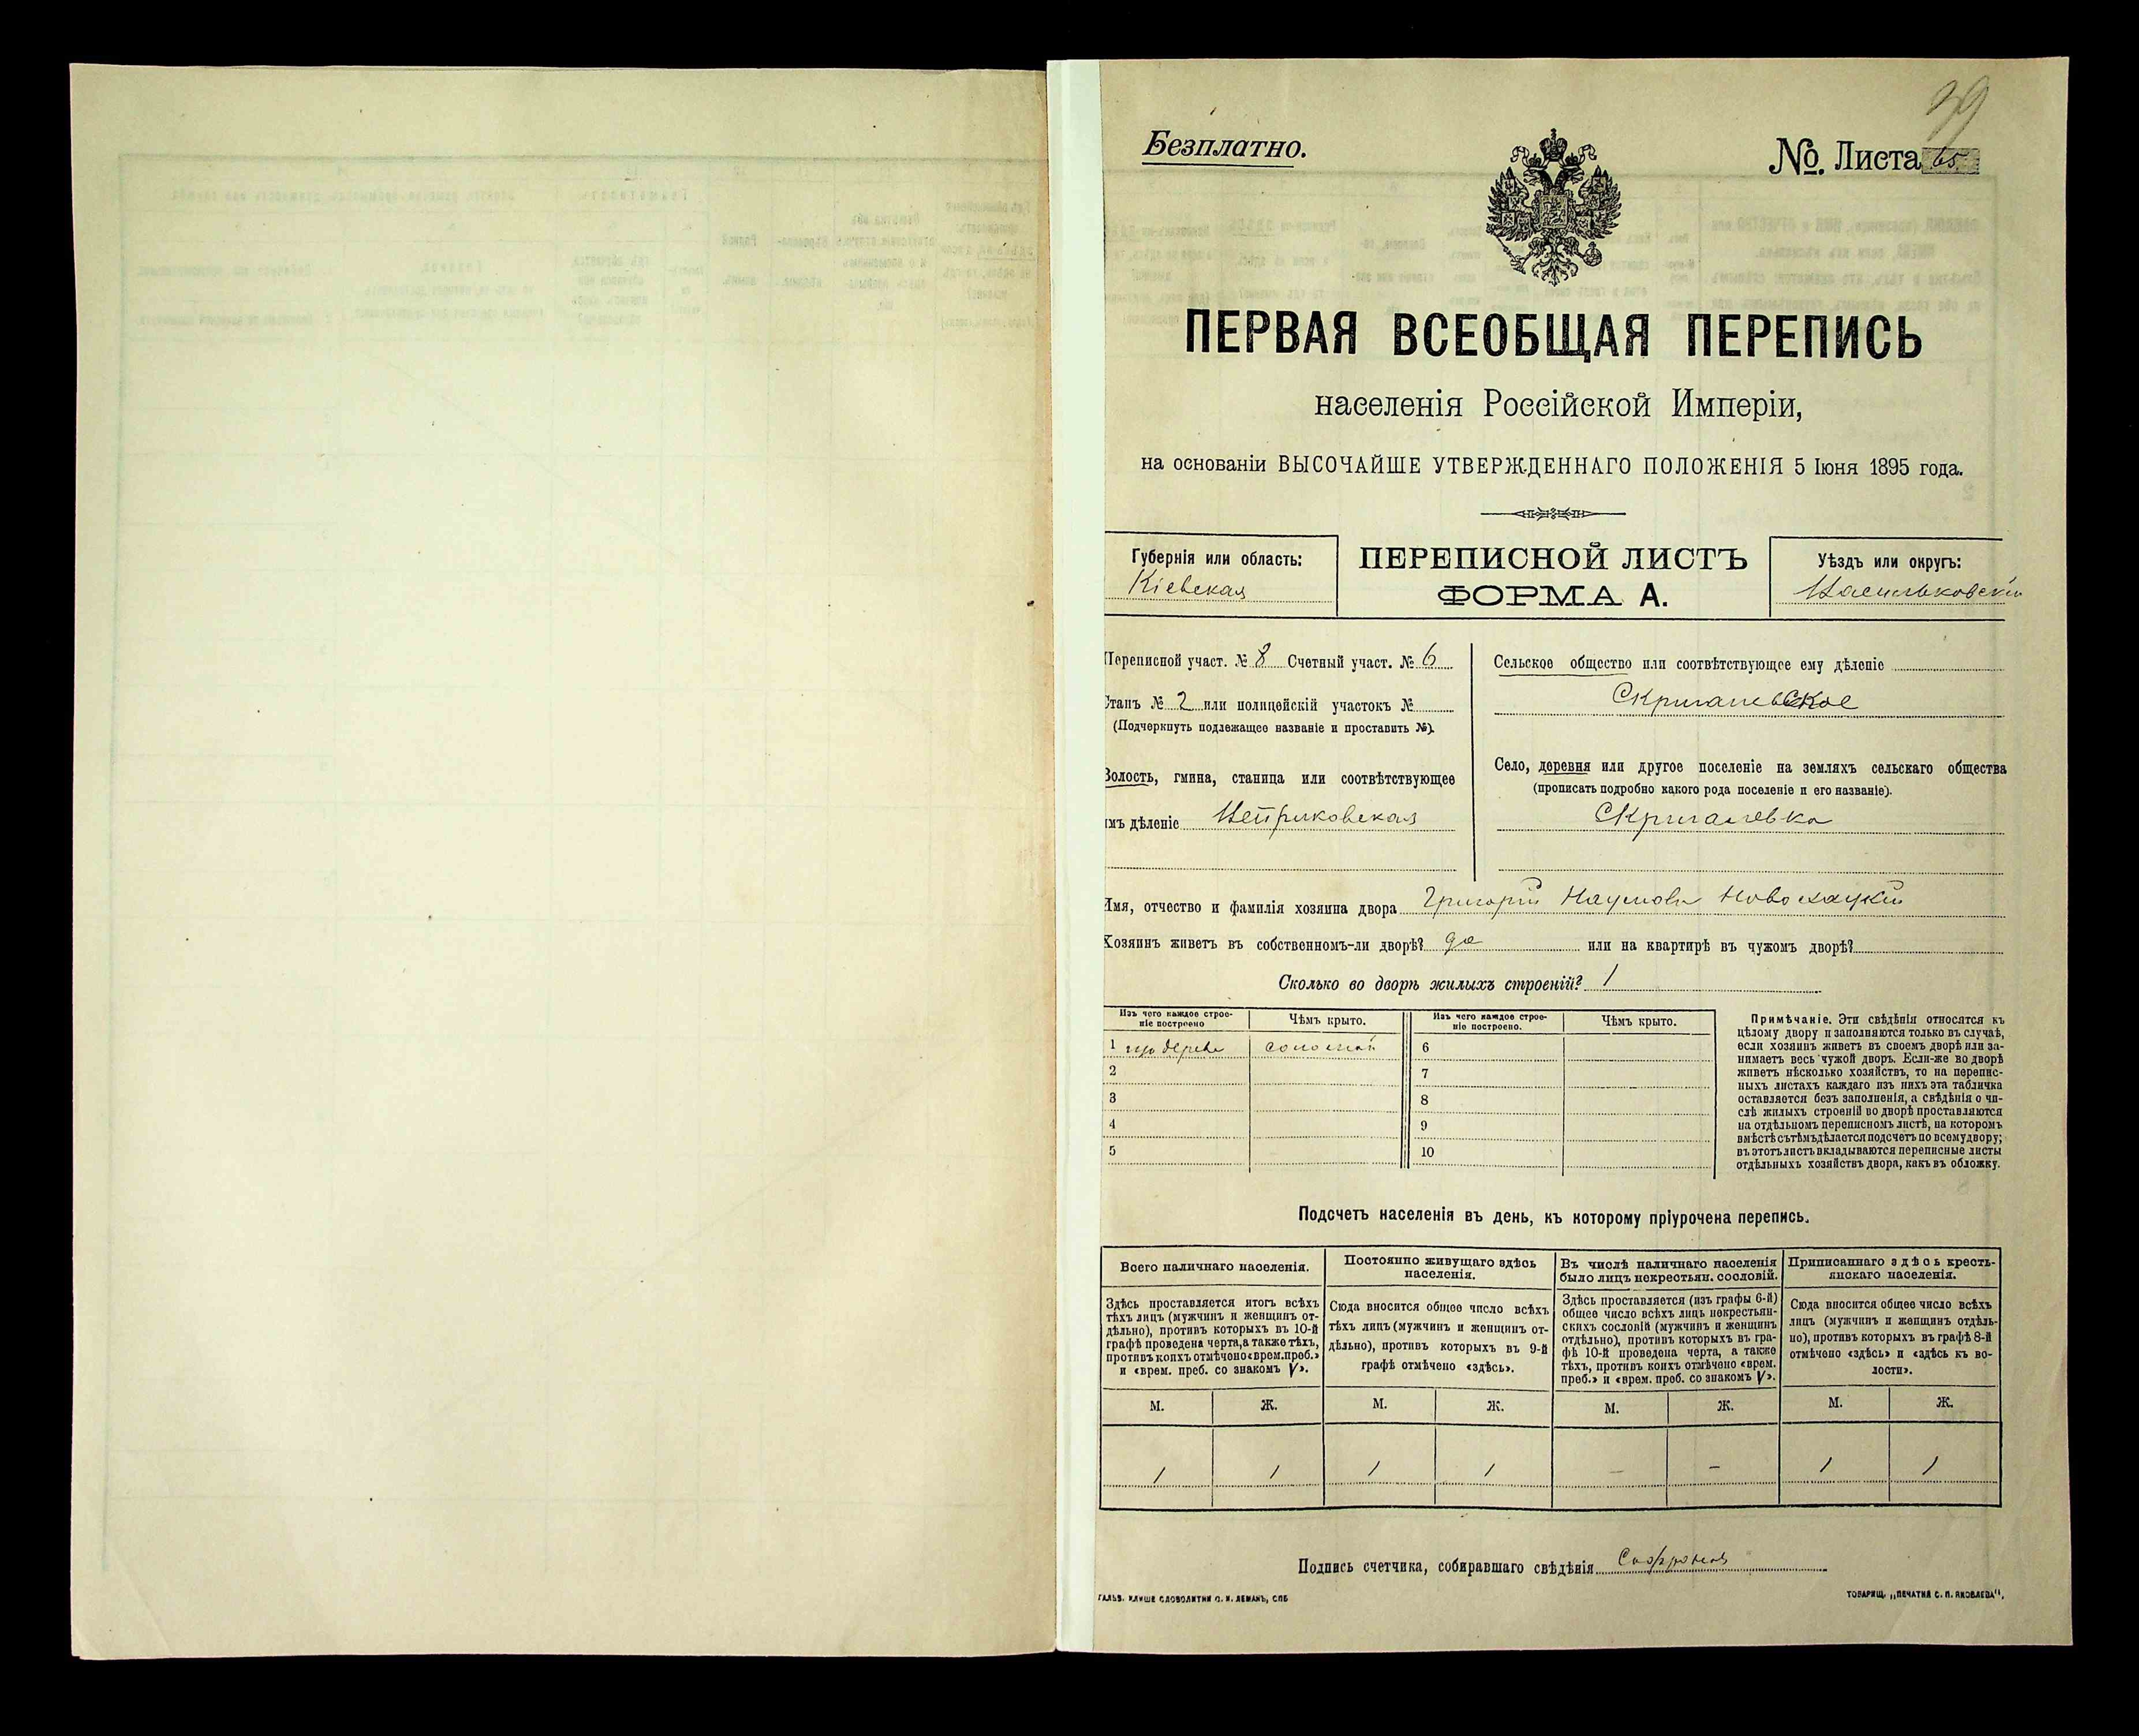 39
Безплатно.
№. Листа 65
ПЕРВАЯ ВСЕОБЩАЯ ПЕРЕПИСЬ
населенія Россійской Имперіи,
на основаніи ВЫСОЧАЙШЕ УТВЕРЖДЕННАГО ПОЛОЖЕНІЯ 5 Іюня 1895 года.
Губернія или область:
Кіевская
ПЕРЕПИСНОЙ ЛИСТЪ
ФОРМА А.
Уѣздъ или округъ:
Васильковскій
Переписной участ. № 8 Счетный участ. № 6
Станъ № 2 или полицейскій участокъ №
(Подчеркнуть подлежащее названіе и проставить №).
Волость, гмина, станица или соотвѣтствующее
имъ дѣленіе
Сельское общество или соотвѣтствующее ему дѣленіе
Скригалевское
Село, деревня или другое поселеніе на земляхъ сельскаго общества
(прописать подробно какого рода поселеніе и его названіе).
Скригалевка
Имя, отчество и фамилія хозяина двора Григорій Наумовъ
Хозяинъ живетъ въ собственномъ-ли дворѣ? да или на квартирѣ въ чужомъ дворѣ?
Сколько во дворѣ жилыхъ строеній? 1
Изъ чего каждое строе-
ніе построено
Чѣмъ крыто.
Изъ чего каждое строе-
ніе построено.
Чѣмъ крыто.
1 изъ дерева соломой 6
2 7
3 8
4 9
5 10
Примѣчаніе. Эти свѣдѣнія относятся къ
цѣлому двору и заполняются только въ случаѣ,
если хозяинъ живетъ въ своемъ дворѣ или за-
нимаетъ весь чужой дворъ. Если-же во дворѣ
живетъ нѣсколько хозяйствъ, то на перепис-
ныхъ листахъ каждаго изъ нихъ эта табличка
оставляется безъ заполненія, а свѣдѣнія о чи-
слѣ жилыхъ строеній во дворѣ проставляются
на отдѣльномъ переписномъ листѣ, на которомъ
вмѣстѣ съ тѣмъ дѣлается подсчетъ по всему двору;
въ этотъ листъ вкладываются переписные листы
отдѣльныхъ хозяйствъ двора, какъ въ обложку.
Подсчетъ населенія въ день, къ которому пріурочена перепись.
Всего наличнаго населенія.
Здѣсь проставляется итогъ всѣхъ
тѣхъ лицъ (мужчинъ и женщинъ от-
дѣльно), противъ которыхъ въ 10-й
графѣ проведена черта, а также тѣхъ,
противъ коихъ отмѣчено «врем. преб.»
и «врем. преб. со знакомъ V».
Постоянно живущаго здѣсь
населенія.
Сюда вносится общее число всѣхъ
тѣхъ лицъ (мужчинъ и женщинъ от-
дѣльно), противъ которыхъ въ 9-й
графѣ отмѣчено «здѣсь».
Въ числѣ наличнаго населенія
было лицъ некрестьян. сословій.
Здѣсь проставляется (изъ графы 6-й)
общее число всѣхъ лицъ некрестьян-
скихъ сословій (мужчинъ и женщинъ
отдѣльно), противъ которыхъ въ гра-
фѣ 10-й проведена черта, а также
тѣхъ, противъ коихъ отмѣчено «врем.
преб.» и «врем. преб. со знакомъ V».
Приписаннаго здѣсь кресть-
янскаго населенія.
Сюда вносится общее число всѣхъ
лицъ (мужчинъ и женщинъ отдѣль-
но), противъ которыхъ въ графѣ 8-й
отмѣчено «здѣсь» и «здѣсь къ во-
лости».
М. Ж. М. Ж. М. Ж. М. Ж.
1 1 1 1 – – 1 1
Подпись счетчика, собиравшаго свѣдѣнія
ГАЛЬВ. КЛИШЕ СЛОВОЛИТНИ О. И. ЛЕМАНЪ, СПБ
ТОВАРИЩ. „ПЕЧАТНЯ С. П. ЯКОВЛЕВА“.